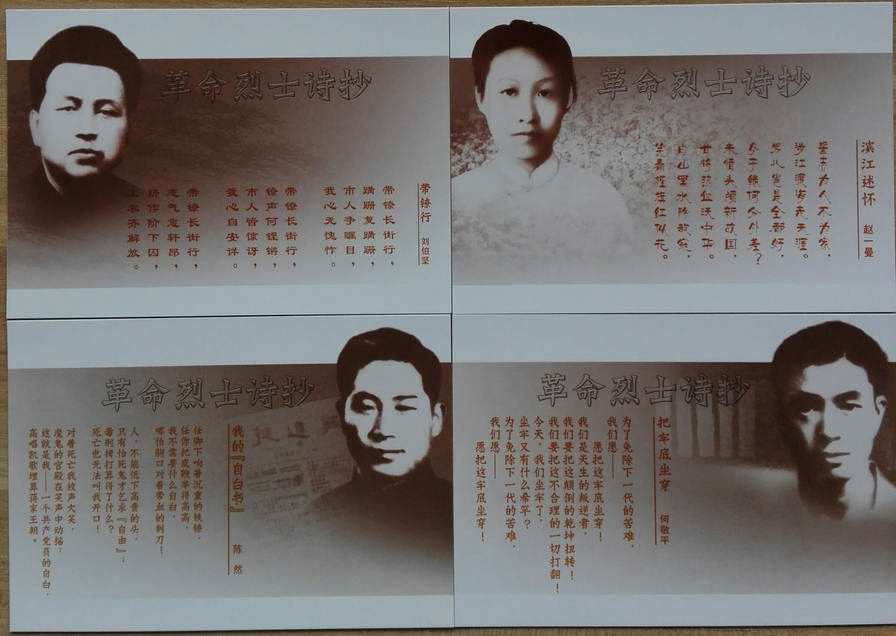 革命烈士诗抄
带镣行 刘伯坚
带镣长街行，
蹒跚复蹒跚，
市人争瞩目，
我心无愧怍。
带镣长街行，
镣声何铿锵，
市人皆惊讶，
我心自安详。
带镣长街行，
志气愈轩昂，
拼作阶下囚，
工农齐解放。
革命烈士诗抄
滨江述怀 赵一曼
誓志为人不为家，
涉江渡海走天涯。
男儿岂是全都好，
女子缘何分外差？
未惜头颅新故国，
甘将热血沃中华。
白山黑水除敌寇，
笑看旌旗红似花。
革命烈士诗抄
我的『自白书』 陈 然
任脚下响着沉重的铁镣，
任你把皮鞭举得高高，
我不需要什么自白，
哪怕胸口对着带血的刺刀！
人，不能低下高贵的头，
只有怕死鬼才乞求『自由』；
毒刑拷打算得了什么？
死亡也无法叫我开口！
对着死亡我放声大笑，
魔鬼的宫殿在笑声中动摇；
这就是我——一个共产党员的自白，
高唱凯歌埋葬蒋家王朝。
革命烈士诗抄
把牢底坐穿 何敬平
为了免除下一代的苦难，
我们愿——
愿把这牢底坐穿！
我们是天生的叛逆者，
我们要把这颠倒的乾坤扭转！
我们要把这不合理的一切打翻！
今天，我们坐牢了，
坐牢又有什么希罕？
为了免除下一代的苦难，
我们愿——
愿把这牢底坐穿！